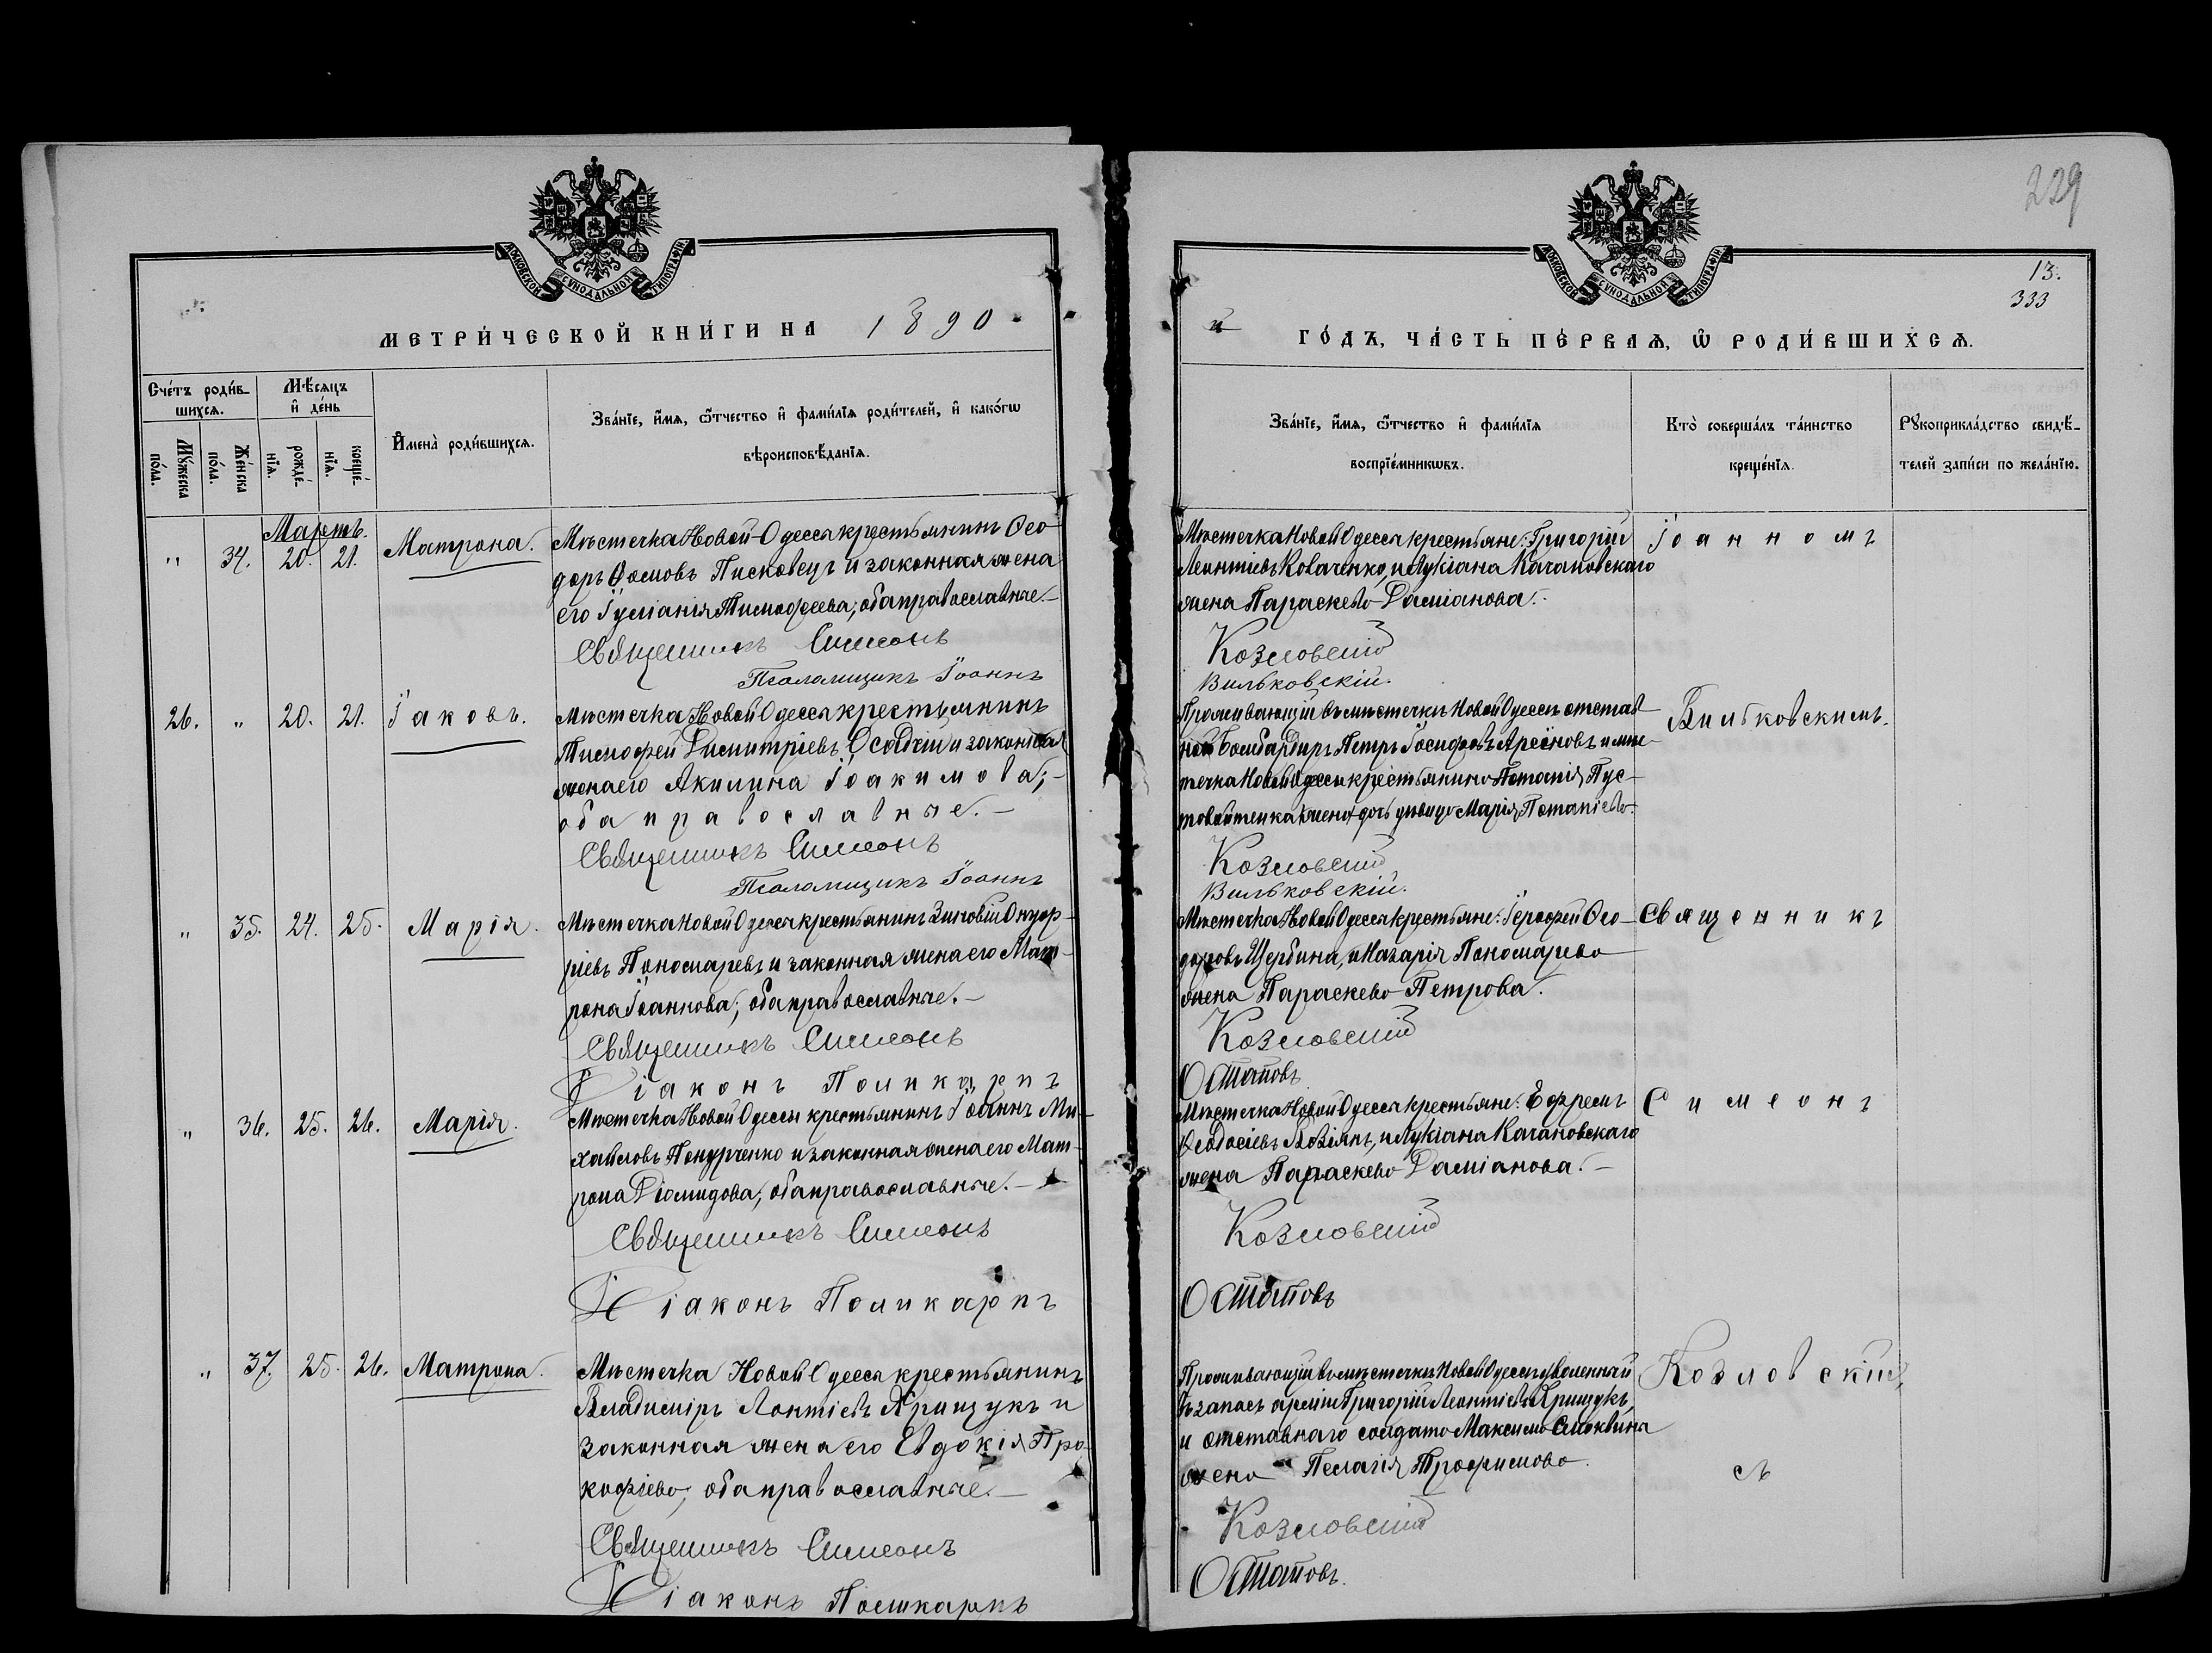 229
13.
333
МОСКОВСКОЙ СѴНОДАЛЬНОЙ ТИПОГРАФІИ
МОСКОВСКОЙ СѴНОДАЛЬНОЙ ТИПОГРАФІИ
МЕТРИ́ЧЕСКОЙ КНИ́ГИ НА 1890.
й ГО́ДЪ, ЧА́СТЬ ПЕ́РВАѦ, Ѡ҆ РОДИ́ВШИХСѦ.
Сче́тъ роди́в-
шихсѧ.
Мѣ́сѧцъ
и҆ де́нь
Мꙋ́жеска
по́ла.
Же́нска
по́ла.
рожде́-
нїѧ.
креще́-
нїѧ.
И҆мена̀ роди́вшихсѧ.
Зва́нїе, и҆́мѧ, ѻ҆́тчество и҆ фами́лїѧ роди́телей, и҆ како́гѡ
вѣроисповѣ́данїѧ.
Зва́нїе, и҆́мѧ, ѻ҆́тчество и҆ фами́лїѧ
воспрїе́мникѡвъ.
Кто̀ соверша́лъ та́инство
креще́нїѧ.
Рꙋкоприкла́дство свидѣ́-
телей за́писи по жела́нїю.
Мартъ.
" 34. 20. 21. Матрона.
Мѣстечка Новой-Одессы крестьянинъ Ѳео-
доръ Ѳомовъ Писковецъ и законная жена
его Іуліанія Тимофеева; оба православные.-
Священникъ Симеонъ
Псаломщикъ Іоаннъ
Мѣстечка Новой Одессы крестьяне: Григорій
Леонтіевъ Коваченко, и Лукіана Качановскаго
жена Параскева Даміанова.-
Козловскій
Вильковскій.
Іоанномъ
26. " 20. 21. Іаковъ.
Мѣстечка Новой Одессы крестьянинъ
Тимофей Димитріевъ Осадчій и законная
жена его Акилина Іоакимова;-
оба православные.-
Священникъ Симеонъ
Псаломщикъ Іоаннъ
Проживающій въ мѣстечкѣ Новой Одессѣ отстав-
ной бомбардиръ Петръ Іосифовъ и мѣс-
течка Новой Одессы крестьянина Потапія Пус-
дочь дѣвица Марія Потапіева.
Козловскій
Вильковскій.
Вильковскимъ.
" 35. 24. 25. Марія.
Мѣстечка Новой Одессы крестьянинъ Зиновій Онуф-
ріевъ Пономаревъ и законная жена его Мат-
рона Іоаннова; оба православные.-
Священникъ Симеонъ
Діаконъ Поликарпъ
Мѣстечка Новой Одессы крестьяне: Іерофей Ѳео-
доровъ Щербина, и Назарія Пономарева
жена Параскева Петрова.
Козловскій
Остаповъ
Священникъ
" 36. 25. 26. Марія.
Мѣстечка Новой Одессы крестьянинъ Іоаннъ Ми-
хаиловъ и законная жена его Мат-
рона Діомидова; оба православные.-
Священникъ Симеонъ
Діаконъ Поликарпъ
Мѣстечка Новой Одессы крестьяне: Ефремъ
Ѳеодосіевъ и Лукіана Качановскаго
жена Параскева Даміанова.-
Козловскій
Остаповъ
Симеонъ
" 37. 25. 26. Матрона.
Мѣстечка Новой Одессы крестьянинъ
Владиміръ Лонтіевъ Хрищукъ и
законная жена его Евдокія Про-
кофіева; оба православные.-
Священникъ Симеонъ
Діаконъ Поликарпъ
Проживающій въ мѣстечкѣ Новой Одессѣ уволенный
въ запасъ арміи Григорій Леонтіевъ Хрищукъ,
и отставнаго солдата Максима Смоквина
жена Пелагія Трофимова.
Козловскій
Остаповъ.
Козловскій,
съ